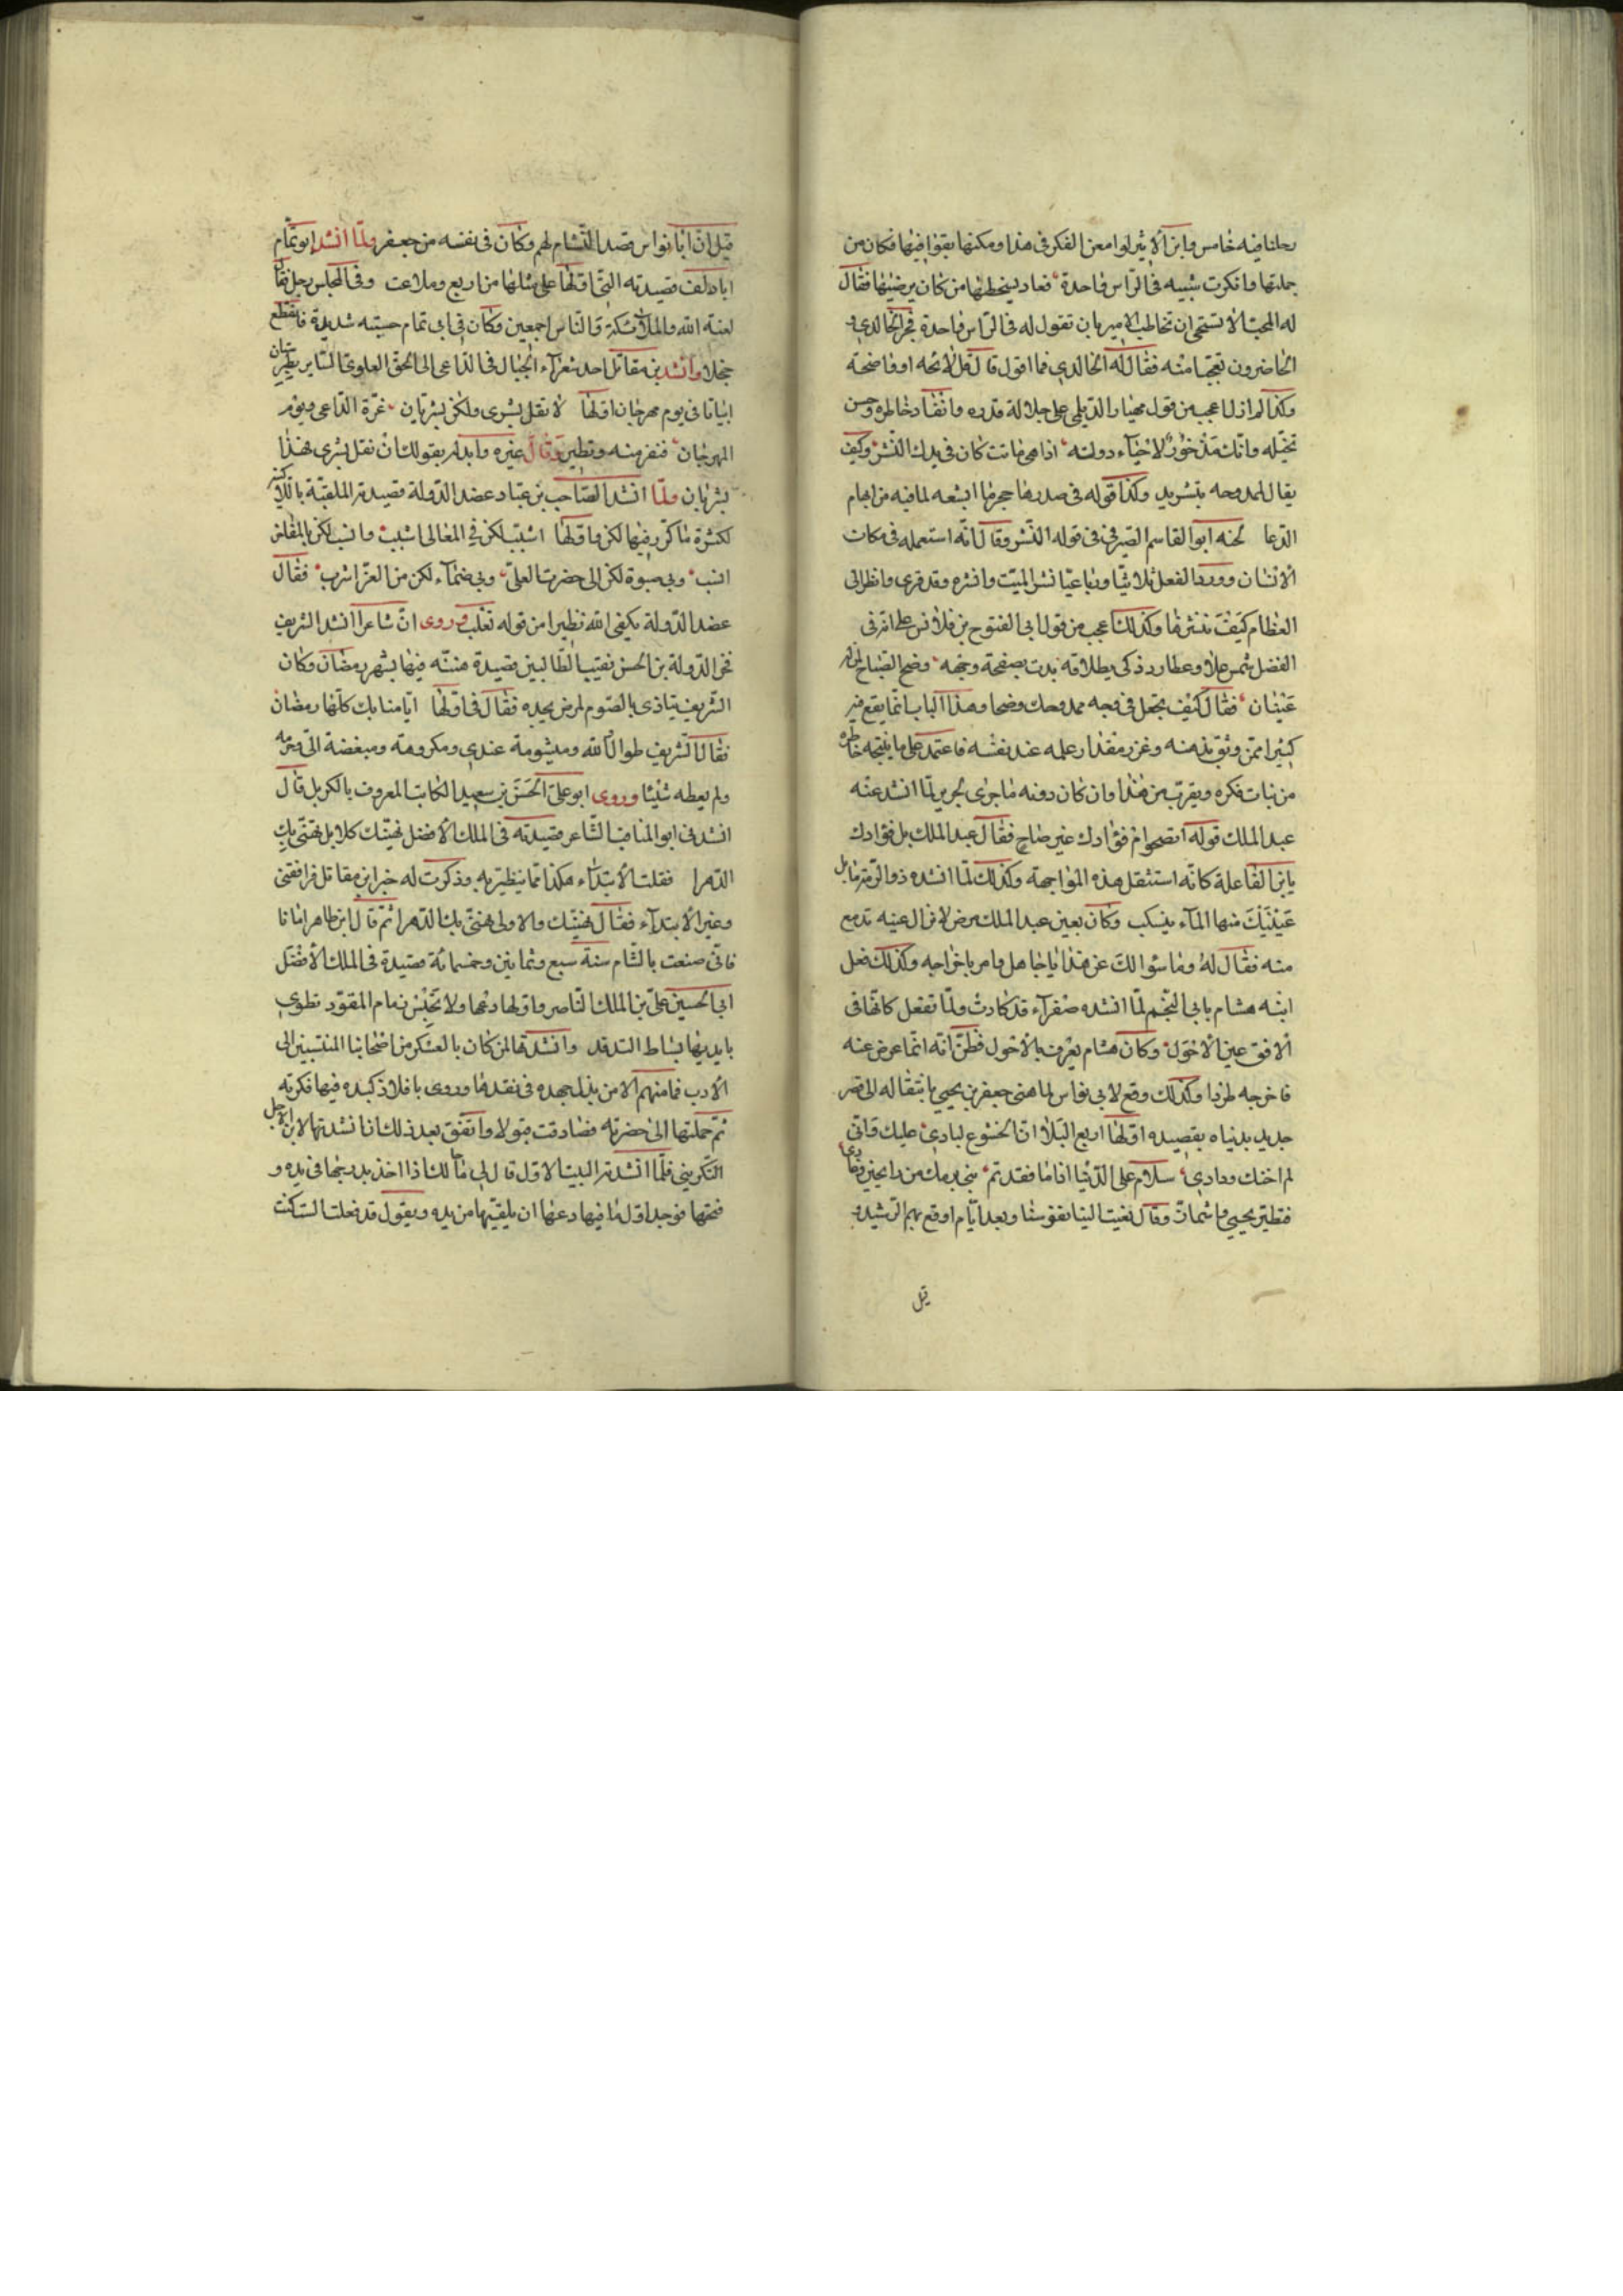 رحلنا فيه خامس وابن الاثير لو امعن الفكر في هذا ومكنها بقوافيها فكان من
جملتها وانكرت شيبه في الراس واحدة فعاد يسخطها من كان يرضيها فقال
له المحب الا تستحي ان تخاطب الامير بان تقول له في الراس واحدة فخر الخالدي و
الحاضرون تعجبا منه فقال له الخالدي فما اقول قال قل لائحه او واضحة
وكذا لم ازل اعجب من قول مهيار الديلمي على جلالة قدره وانقاد خاطره وحسن
تخيله وانك مذخور لاحياء دولة اذا هي ماتت كان في يدك النشر وكيف
يقال لممدوحه بتشريد وكذا قوله في صدرها حجرها ابشعه لما فيه من ايهام
الدعا لحنه ابو القاسم الصيرفي في قوله النشر وقال انه استعمله في مكان
الانسان وورود الفعل ثلاثيا ورباعيا نشر الميت وانشره وقد قرى وانظر الى
العظام كيف ننشرها وكذلك اعجب من قول ابي الفتوح بن قلاقس على انه في
الفضل شمس علا وعطارد ذكى يطلاقه بدت بصفحة وجهه وضح الصباح لمن له
عينان فقال كيف يجعل في وجه ممدوحك وضحا وهذا الباب انما يقع فيه
كثيرا ممن وثق بذهنه وغزر مقدار علمه عند نفسه فاعتمد على ما ينتجه خاطره
من نبات فكره ويقرب من هذا وان كان دونه ما جرى لجرير لما انشد عنه
عبد الملك قوله اتصحو ام فؤادك غير صاح فقال عبد الملك بل فؤادك
يا ابن الفاعلة كانه استثقل هذه المواجهة وكذلك لما انشده ذو الرمة ما بال
عينيك منها المآء ينسكب وكان بعين عبد الملك مرض لا تزال عينه تدمع
منه فقال له وما سوالك عن هذا يا جاهل وامر باخراجه وكذلك فعل
ابنه هشام بابي النجم لما انشده صفرآء قد كادت ولما تفعل كانها في
الافق عين الاحول وكان هشام يعرف بالاحول فظن انه انما عرض عنه
فاخرجه طردا وكذلك وقع لابي نواس لما هنى جعفر بن يحيى بانتقاله الى قصر
جديد بدنياه بقصيده اولها اربع البلا ان الخشوع لبادي عليك واني
لم اخنك ودادي سلام على الدنيا اذا ما فقدتم بني برمك من رايحين وغادي
فتطير يحيى واشمأز وقال نعيت الينا نفوسنا وبعد ايام اوقع بهم الرشيد و
قيل
قيل ان ابا نواس قصد التشام لهم وكان في نفسه من جعفر ولما انشد ابو تمام
ابا دلف قصيدته التي اولها على مثلها من اربع وملاعب وفي المجلس رجل فقال
لعنة الله والملائكة والناس اجمعين وكان في ابي تمام حبسه شديدة فانقطع
خجلا وانشد بن مقاتل احد شعرآء الجبال في الداعي الى الحق العلوي
ابياتا في يوم مهرجان اولها لا تقل بشرى ولكن بشريان غرة الداعي ويوم
المهرجان فنفر منه وتطير وقال غيره وابدله بقولك ان تقل بشرى فهذا
بشريان ولما انشد الصاحب بن عباد عضد الدولة قصيدته الملقبة باللاكنية
لكثرة ما كرر فيها لكن واولها اشبب لكن في المعالي اشبب وانسب لكن بالمفاخر
انسب وبي صبوة لكن الى حضرت العلى وبي ضمآء لكن من العز اشرب فقال
عضد الدولة يكفي الله تطيرا من قوله تغلب وروى ان شاعرا انشد الشريف
فخر الدولة بن الحسن نقيب الطالبيين قصيدة هنئه فيها بشهر رمضان وكان
الشريف يتاذى بالصوم لمرض يجده فقال في اولها ايامنا بك كلها رمضان
فقال الشريف طوال والله وميشومة عندي ومكروهة ومبغضة الي وحرمه
ولم يعطه شيئا وروى ابو علي الحسن بن سعيد الكاتب المعروف بالكربل قال
انشدني ابو المناقب الشاعر قصيدته في الملك الافضل نهنيك كلا بل نهنى بك
الدهرا فقلت الابتداء هكذا مما يتطير به وذكرت له خبر ابن مقاتل فرافقني
وغير الابتدآء فقال نهنيك والاولى نهنى بك الدهرا ثم قال ابن ظاهر انا نا
فاني صنعت بالشام سنة سبع وثمانين وخمسمائة قصيدة في الملك الافضل
ابي الحسين علي بن الملك الناصر واولها دعها ولا تحبس زمام المقود تطوي
بايديها بساط الفدفد وانشدتها لمن كان بالعسكر من اصحابنا المنتسبين الى
الادب فما منهم الا من بذل جهده في نقدها وروى بافلاذ كبده فيها فكرته
ثم حملتها الى حضرته فصادفت قبولا واتفق بعد ذلك انا انشدتها لابن الاجل
التكريتي فلما انشدته البيت الاول قال لي مالك اذا اخذ بدرجها في يده و
فتحها فوجد اول ما فيها دعها ان يلقيها من يده ويقول قد فعلت السكت